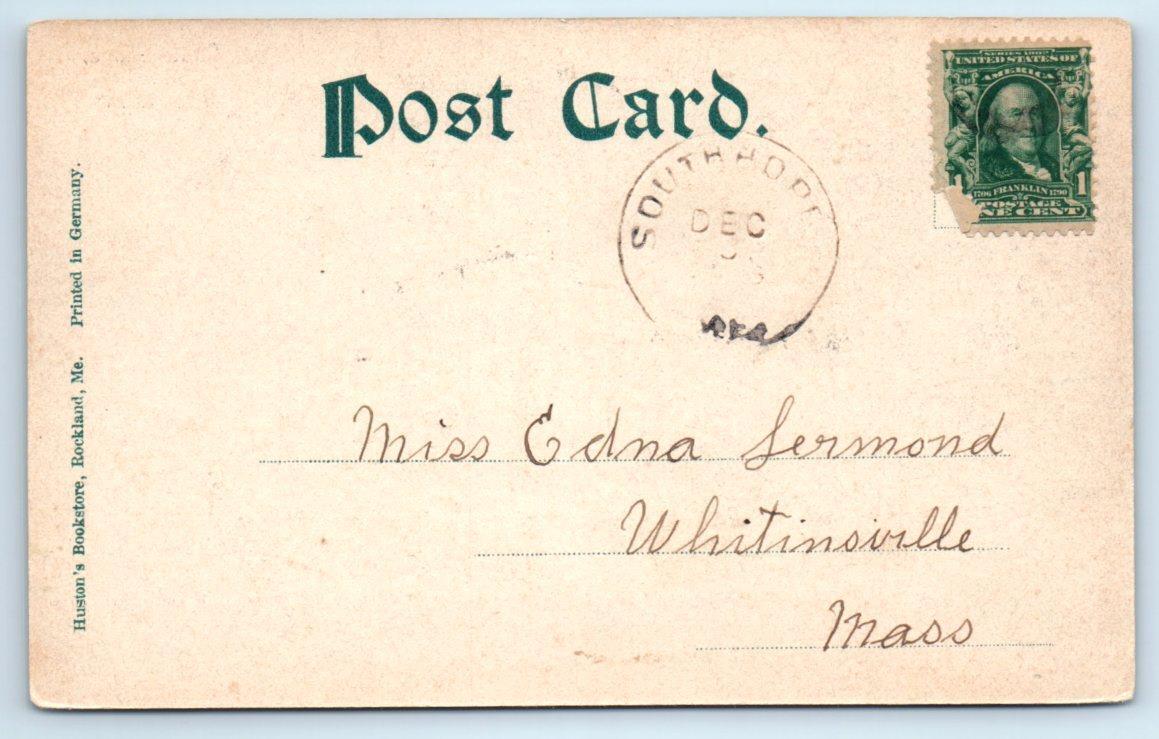 Post Card.
SERIES 1902
UNITED STATES OF
AMERICA
1706 FRANKLIN 1790
1 1
POSTAGE
ONE CENT
SOUTH HOPE
DEC
Miss Edna Sermond
Whitinsville
Mass
Huston's Bookstore, Rockland, Me. Printed in Germany.